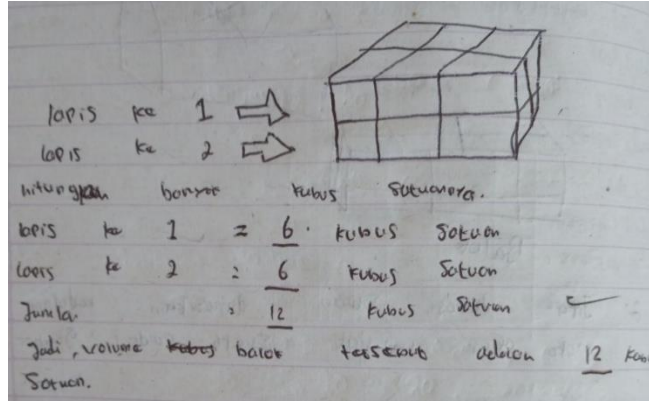 lapis ke 1
lapis ke 2
hitunglah banyak kubus satuannya.
lapis ke 1 = 6 kubus satuan
lapis ke 2 = 6 kubus satuan
Jumla = 12 kubus satuan
Jadi, volume balok tersebut adalah 12
Satuan.